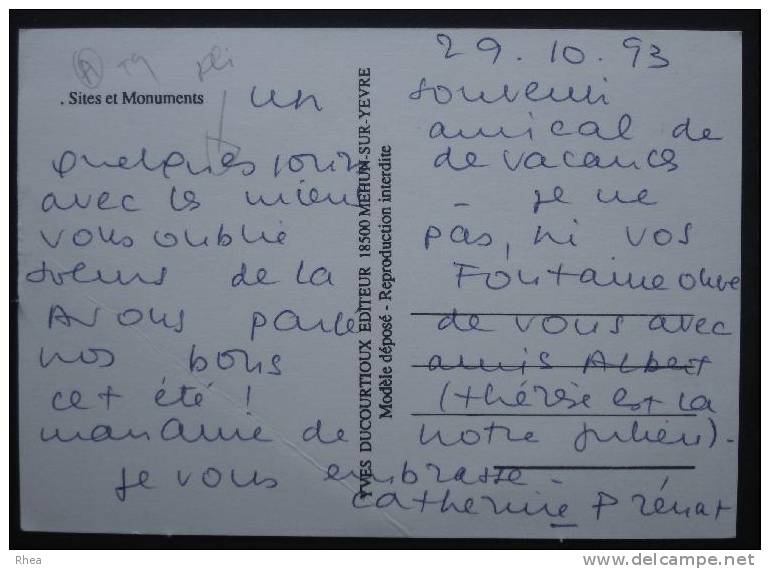 29.10.93
A TA pli
. Sites et Monuments
un souvenir
amical de
quelques jours de vacances
avec les miens - je ne
vous oublie pas, ni vos
soeurs de la Fontaine
Avons parlé de vous avec
nos bons amis Albert
cet été ! (thérèse est la
marraine de notre Julien).
je vous embrasse -
Catherine Prénat
YVES DUCOURTIOUX EDITEUR 18500 MEHUN-SUR-YEVRE
Modèle déposé - Reproduction interdite
Rhea
©delcampe.net